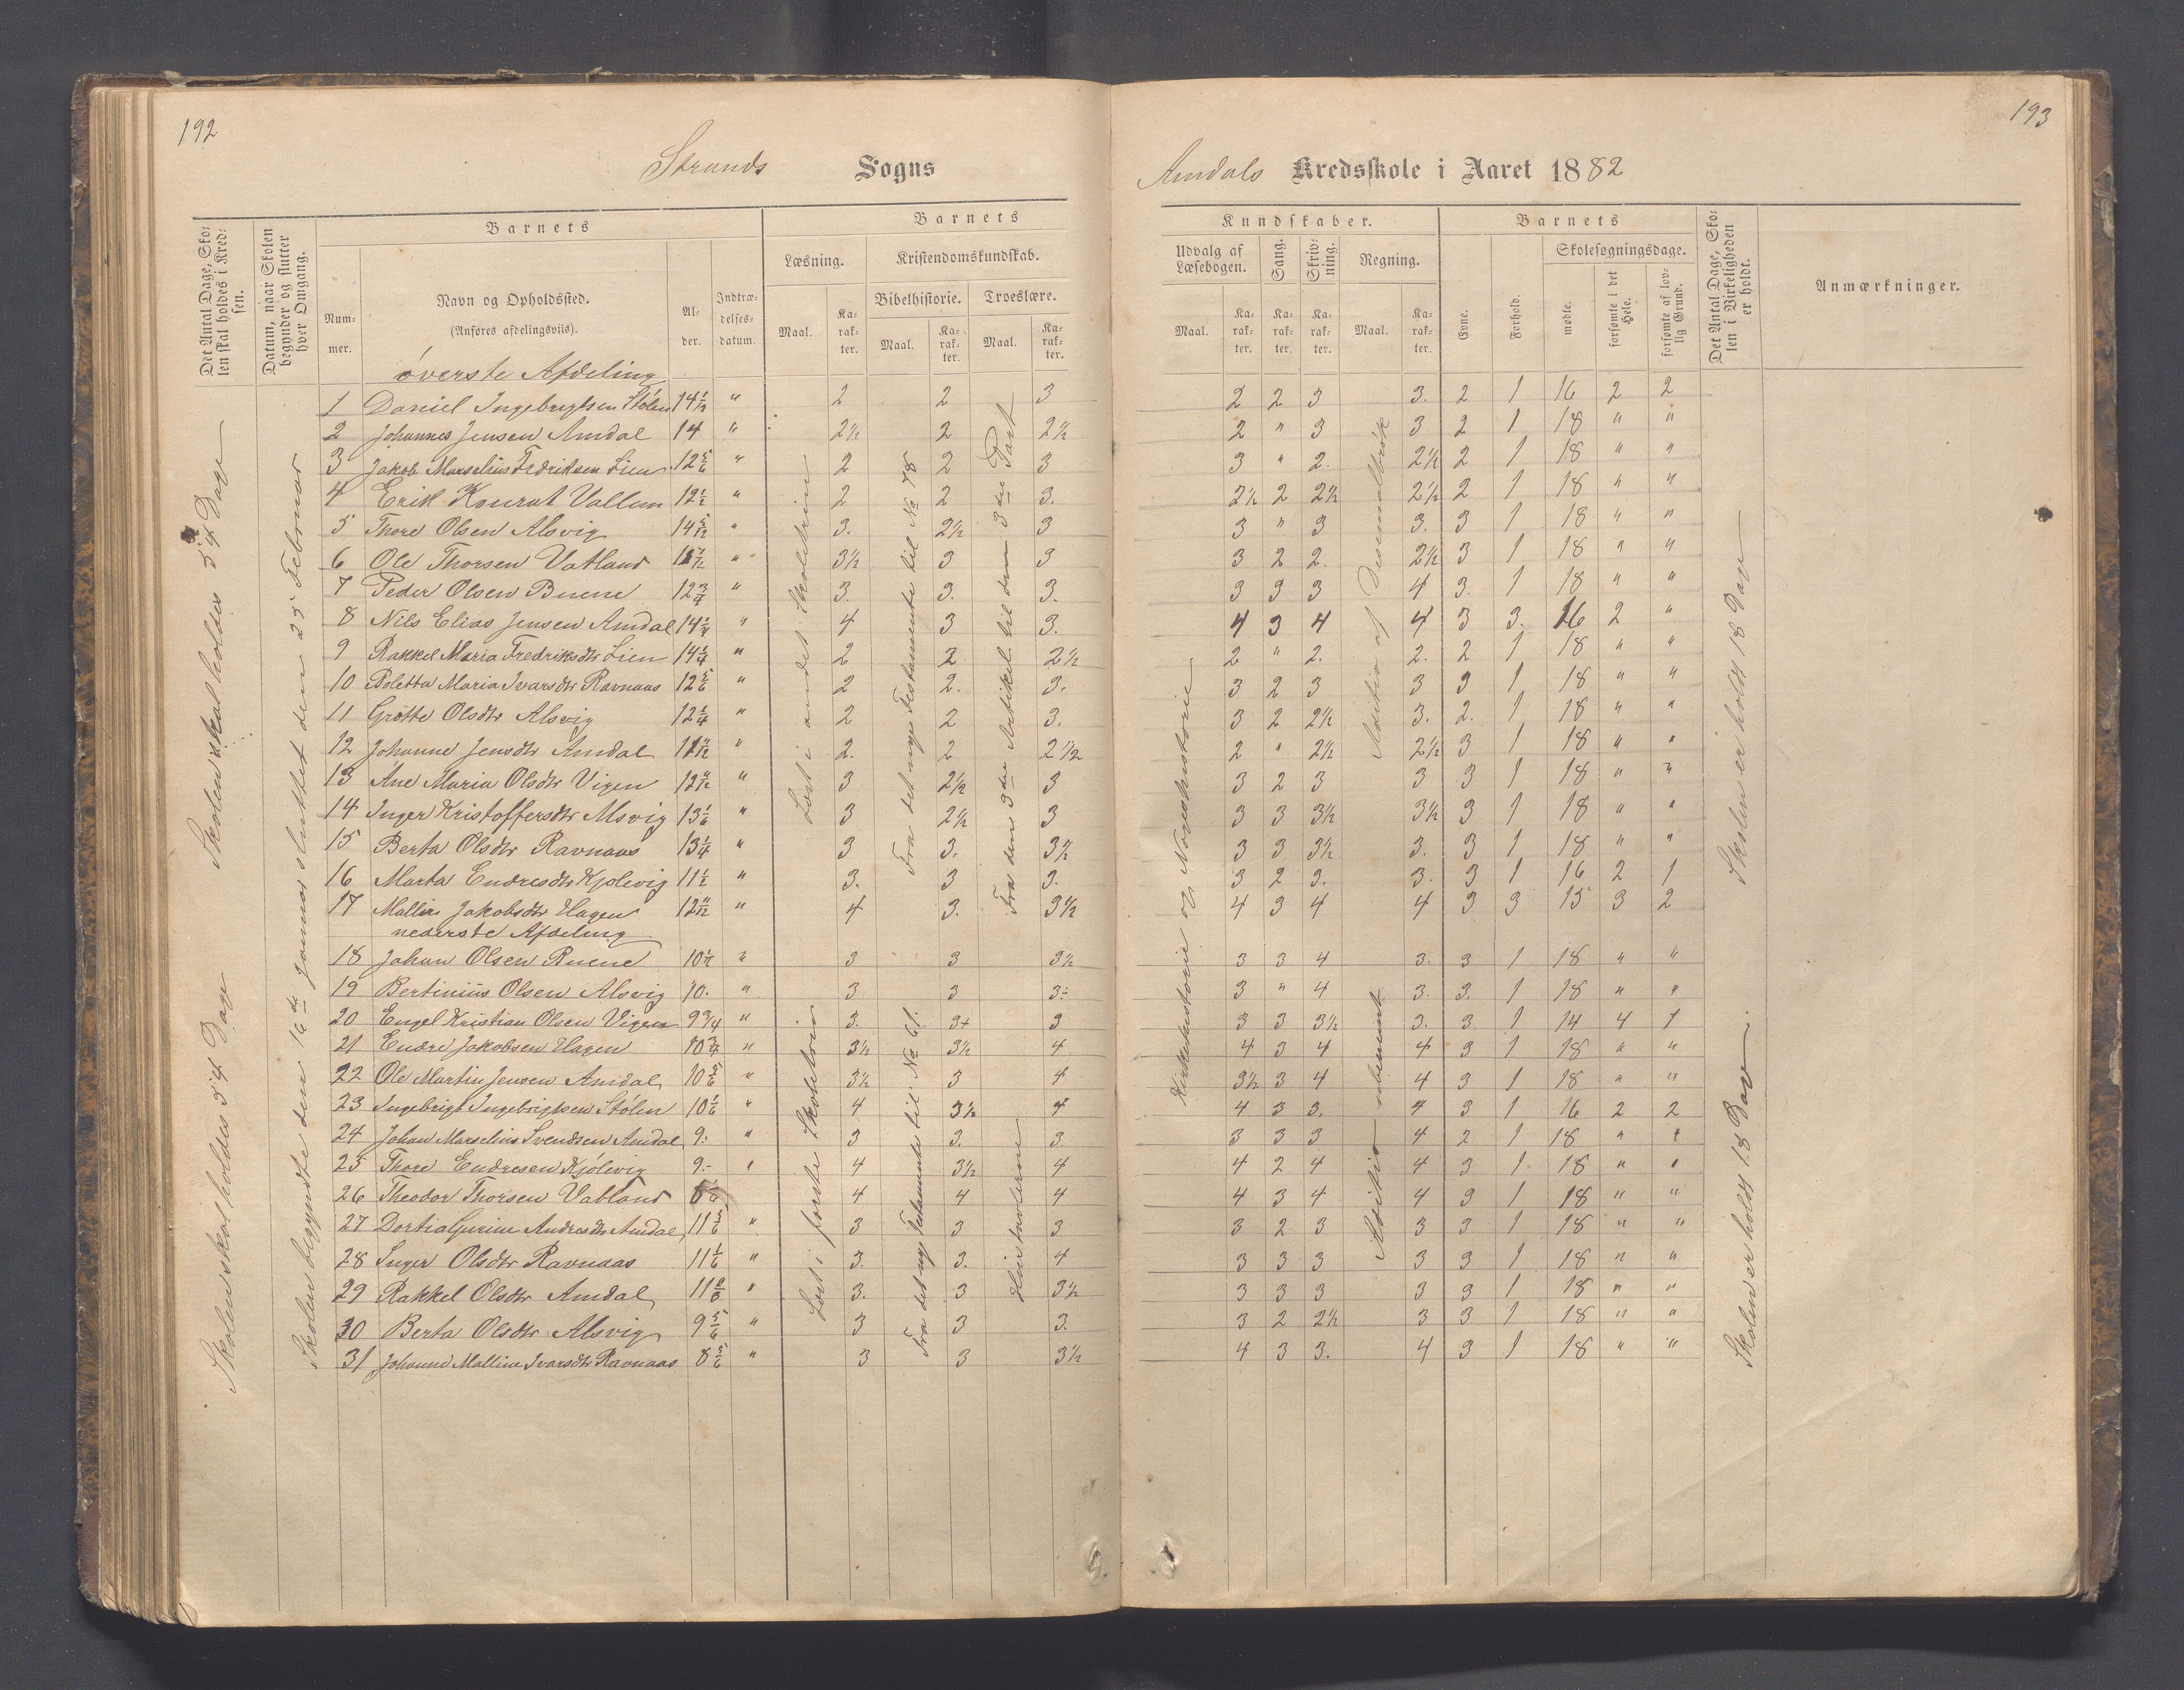 192
193
Strands Sogns
Amdals Kredsskole i Aaret 1882
Det Antal Dage, Skolen skal holdes i Kredsen.
Datum, naar Skolen begynder og slutter hver Omgang.
Barnets
Nummer.
Navn og Opholdssted.
(Anføres afdelingsviis).
Alder.
Indtrædelsesdatum.
Barnets
Læsning.
Maal.
Karakter.
Kristendomskundskab.
Bibelhistorie.
Maal.
Karakter.
Troeslære.
Maal.
Karakter.
Kundskaber.
Udvalg af Læsebogen.
Maal.
Karakter.
Sang.
Karakter.
Skrivning.
Karakter.
Regning.
Maal.
Karakter.
Barnets
Evne.
Forhold.
Skolesøgningsdage.
mødte.
forsømte i det Hele.
forsømte af lovlig Grund.
Det Antal Dage, Skolen i Virkeligheden er holdt.
Anmærkninger.
øverste Afdeling
1 Daniel Ingebrigtsen Stölen 14 1/12 " 2 2 3 2 2 3 3. 2 1 16 2 2
2 Johannes Jensen Amdal 14 " 2½ 2 2½ 2 " 3 3 2 1 18 " "
3 Jakob Marselius Fredriksen Lien 12 5/6 " 2 2 3 3 " 2. 2½ 2 1 18 " "
4 Erik Konrat Vallum 12 1/2 " 2 2 3. 2½ 2 2½ 2½ 2 1 18 " "
5 Thore Olsen Alsvig 14 5/12 " 3. 2½ 3 3 " 3 3. 3 1 18 " "
6 Ole Thorsen Vatland " 3½ 3 3 3 2 2. 2½ 3 1 18 " "
7 Peder Olsen Buene 12 3/4 " 3. 3. 3. 3 3 3 4 3. 1 18 " "
8 Nils Elias Jensen Amdal 14 1/4 " 4 3 3. 4 3 4 4 3 3. 16 2 "
9 Rakkel Maria Fredriksdtr Lien 14 1/4 " 2 2 2½ 2 " 2. 2. 2 1 18 " "
10 Boletta Maria Ivarsdtr Ravnaas 12 5/6 " 2 2. 3. 3 2 3 3 3 1 18 " "
11 Grötte Olsdtr Alsvig 12 1/4 " 2 2 3. 3 2 2½ 3. 2. 1 18 " "
12 Johanne Jensdtr Amdal " 2. 2 2½ 2 " 2½ 2½ 3 1 18 " "
13 Ane Maria Olsdtr Vigen " 3 2½ 3 3 2 3 3 3 1 18 " "
14 Inger Kristoffersdtr Alsvig 13 1/6 " 3 2½ 3 3 3 3½ 3½ 3 1 18 " "
15 Berta Olsdtr Ravnaas 13 1/4 " 3 3. 3½ 3 3 3½ 3. 3 1 18 " "
16 Marta Endresdtr Kjølevig 11 1/2 " 3. 3 3. 3 2 3. 3. 3 1 16 2 1
17 Mallin Jakobsdtr Hagen 12 11/12 " 4 3. 3½ 4 3 4 4 3 3 15 3 2
nederste Afdeling
18 Johan Olsen Buene " 3 3 3½ 3 3 4 3. 3 1 18 " "
19 Bertinius Olsen Alsvig 10. " 3 3 3÷ 3 " 4 3. 3. 1 18 " "
20 Engel Kristian Olsen Vigen 9 3/4 " 3. 3+ 3 3 3 3½ 3. 3 1 14 4 1
21 Endre Jakobsen Hagen 10 3/4 " 3½ 3½ 4 4 3 4 4 3 1 18 " "
22 Ole Martin Jensen Amdal 10 5/6 " 3½ 3 4 3½ 3 4 4 3 1 18 " "
23 Ingebrigt Ingebrigtsen Stölen 10 1/6 " 4 3½ 4 4 3 3. 4 3 1 16 2 2
24 Johan Marselius Svendsen Amdal 9. " 3 3. 3. 3 3 3 4 2 1 18 " "
25 Thore Endresen Kjölevig 9.- " 4 3½ 4 4 2 4 4 3 1 18 " "
26 Theodor Thorsen Vatland 4 4 4 4 3 4 4 3 1 18 " "
27 Dortia Gurine Andresdtr Amdal 11 5/6 " 3 3 3 3 2 3 3 3 1 18 " "
28 Inger Olsdtr Ravnaas 11 1/6 " 3. 3. 4 3 3 3 3 3 1 18 " "
29 Rakkel Olsdtr Amdal " 3. 3 3½ 3 3 3 3 3 1 18 " "
30 Berta Olsdtr Alsvig 9 5/6 " 3 3 3. 3 2 2½ 3 3 1 18 " "
31 Johanne Malline Ivarsdtr Ravnaas 8 5/6 " 3 3 3½ 4 3 3. 4 3 1 18 " "
Skolen skal holdes 54 Dage
Skolen skal holdes 54 Dage
Skolen begyndte den 16de Januar sluttet den 25 Februar
Læst i andet Skoletrin
Læst i første Skoletrin
Fra det nye Testamente til No 78
Fra det nye Testamente til No 61.
Fra den 3die Artikel til den 3die Part
Kirkehistorie og Norgeshistorie
Adition af Desemalbrök
Adition ubenævnt
Skolen er holdt 18 Dage
Skolen er holdt 18 Dage